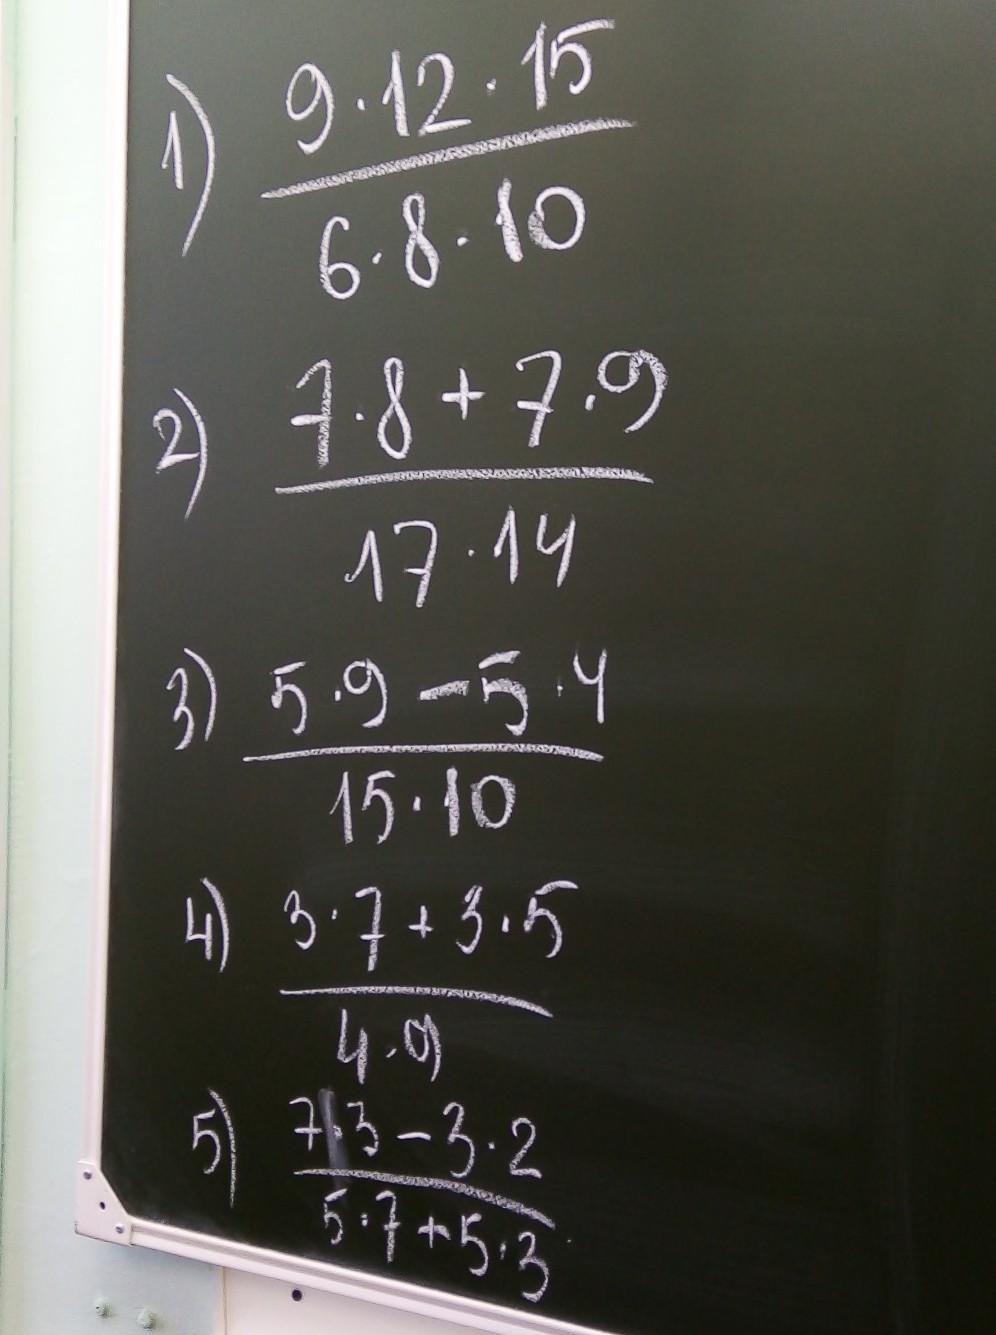 1) 9·12·15
6·8·10
2) 7·8+7·9
17·14
3) 5·9-5·4
15·10
4) 3·7+3·5
4·9
5) 7·3-3·2
5·7+5·3